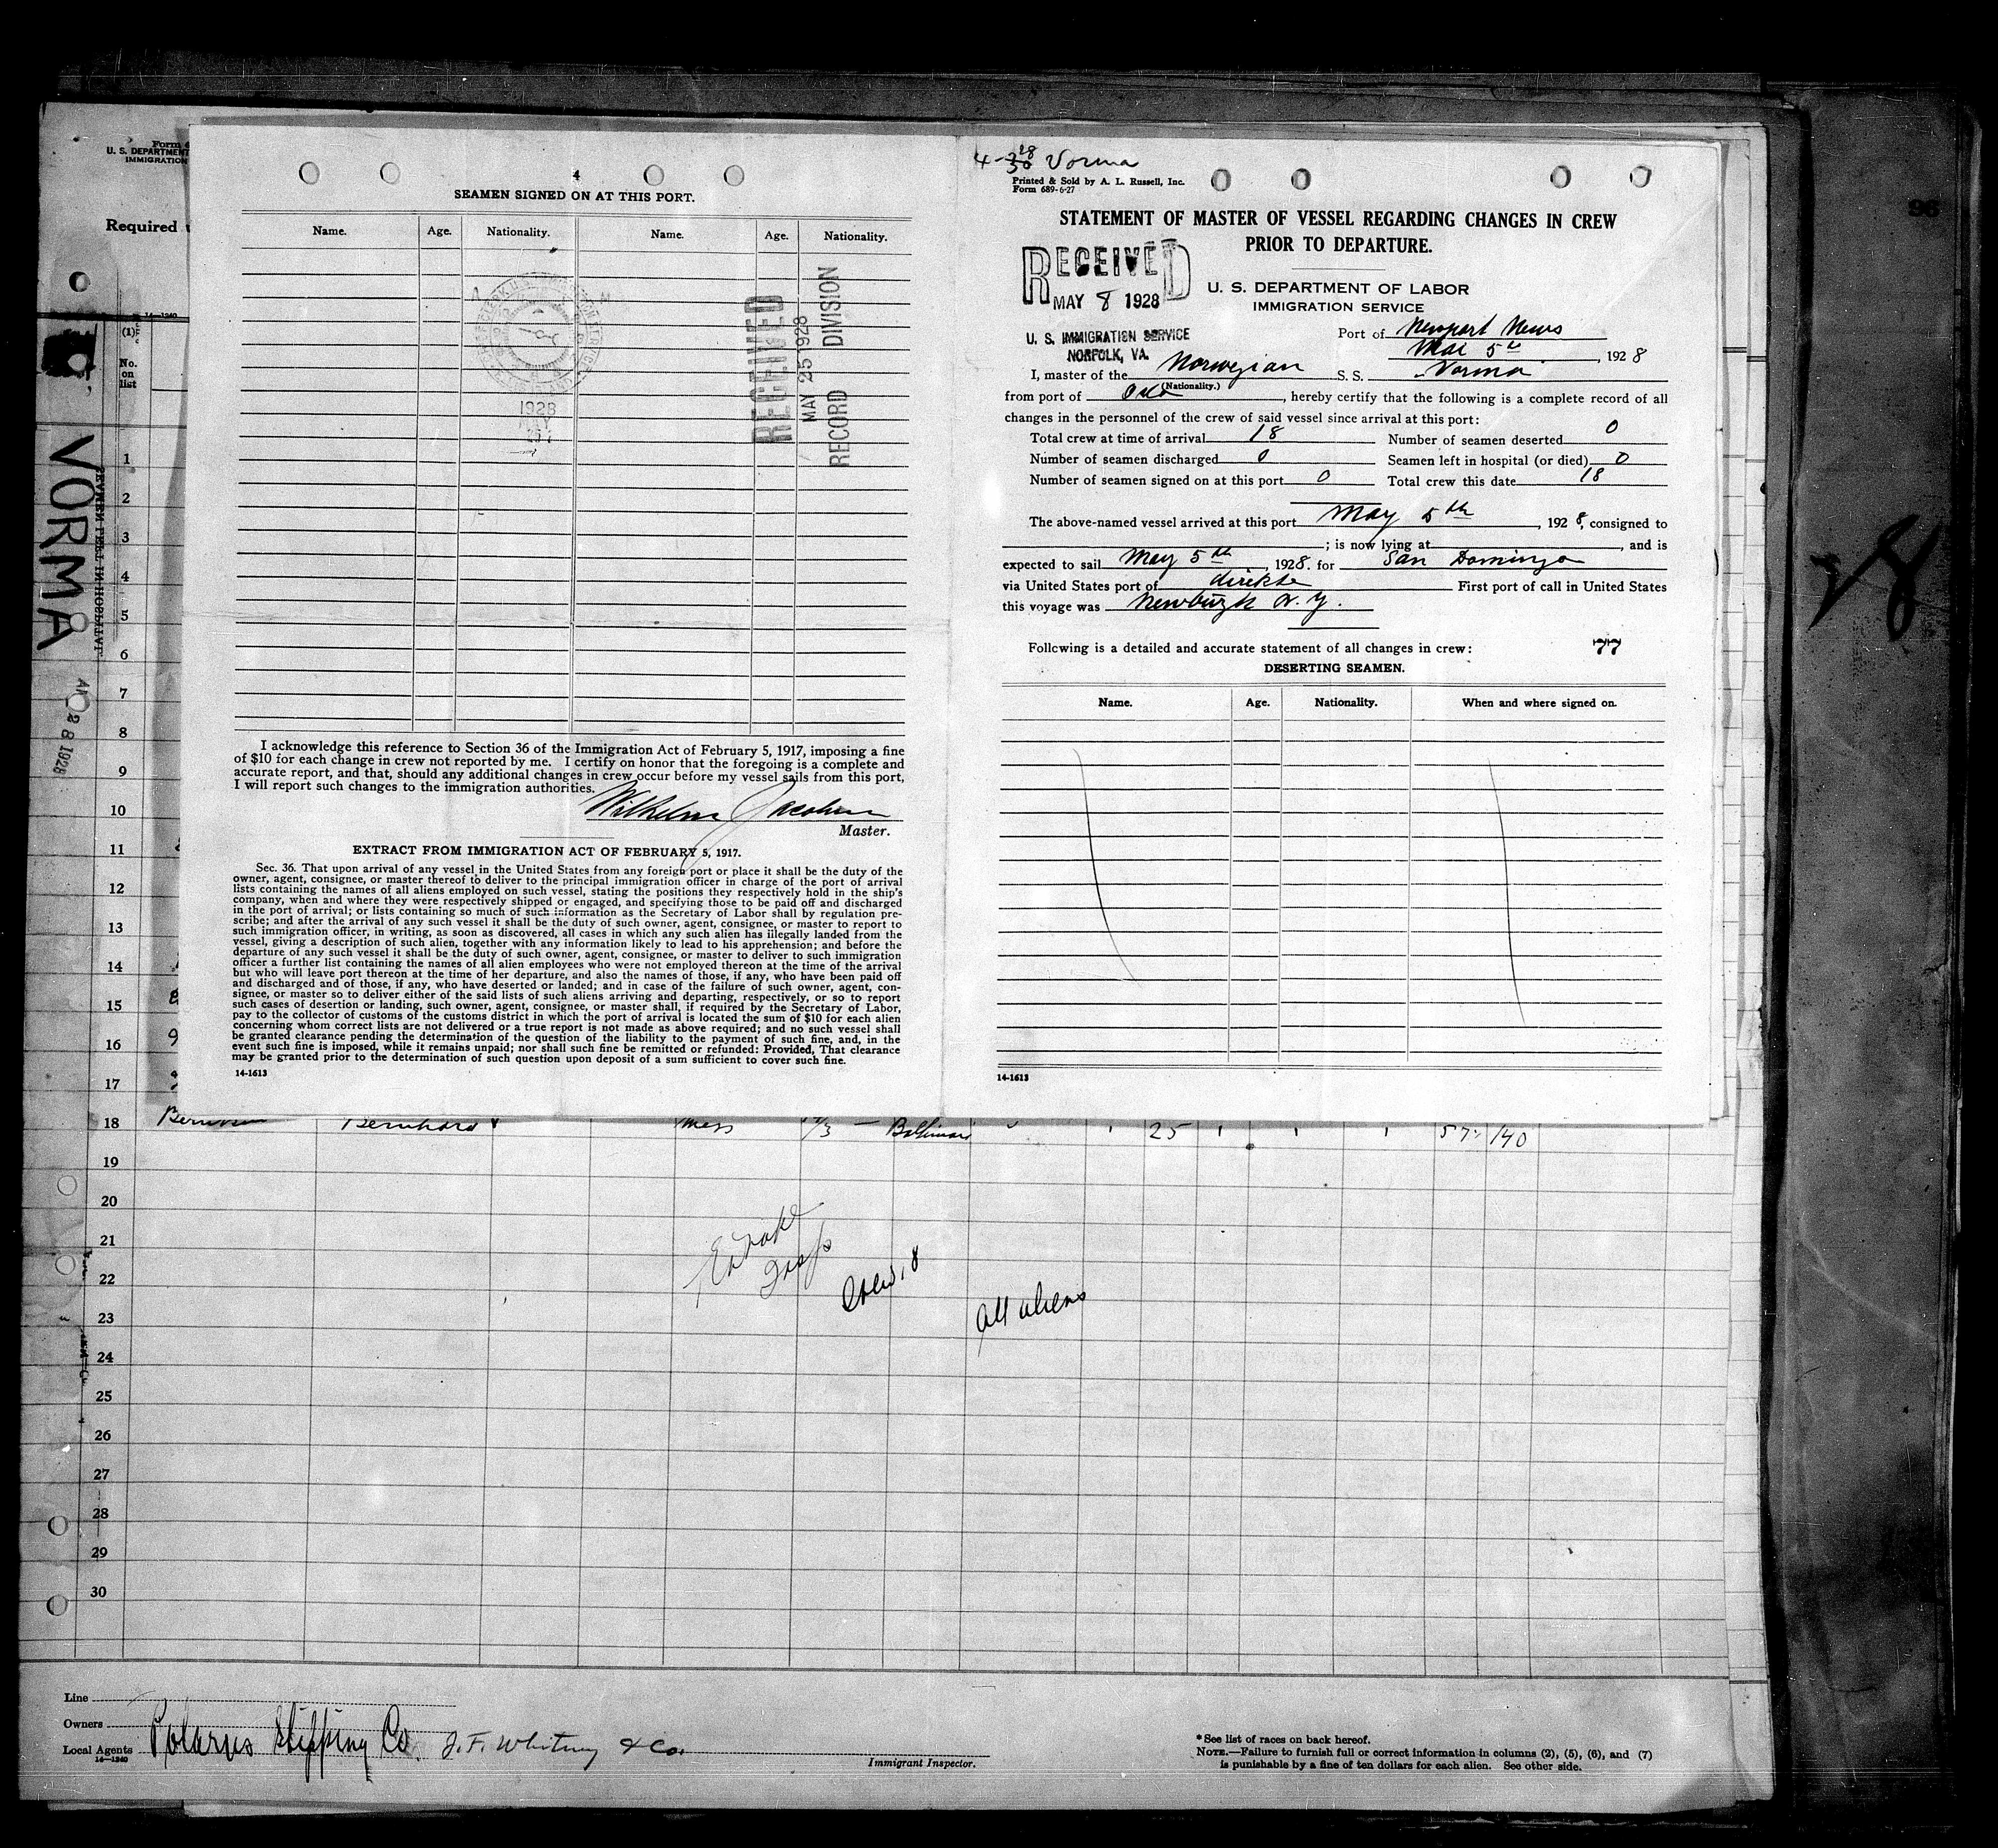 Form
U. S. DEPARTMENT
IMMIGRATION
Required
14—1240
(1)
No.
on
list
VORMA
SEVEN FEET IN HOSPITAL
2 8 1928
4
SEAMEN SIGNED ON AT THIS PORT.
Name. Age. Nationality. Name. Age. Nationality.
1928
MAY
RECEIVED
MAY 25 1928
RECORD DIVISION
I acknowledge this reference to Section 36 of the Immigration Act of February 5, 1917, imposing a fine
of $10 for each change in crew not reported by me. I certify on honor that the foregoing is a complete and
accurate report, and that, should any additional changes in crew occur before my vessel sails from this port,
I will report such changes to the immigration authorities.
Wilhelm Jacobsen
Master.
EXTRACT FROM IMMIGRATION ACT OF FEBRUARY 5, 1917.
Sec. 36. That upon arrival of any vessel in the United States from any foreign port or place it shall be the duty of the
owner, agent, consignee, or master thereof to deliver to the principal immigration officer in charge of the port of arrival
lists containing the names of all aliens employed on such vessel, stating the positions they respectively hold in the ship's
company, when and where they were respectively shipped or engaged, and specifying those to be paid off and discharged
in the port of arrival; or lists containing so much of such information as the Secretary of Labor shall by regulation pre-
scribe; and after the arrival of any such vessel it shall be the duty of such owner, agent, consignee, or master to report to
such immigration officer, in writing, as soon as discovered, all cases in which any such alien has illegally landed from the
vessel, giving a description of such alien, together with any information likely to lead to his apprehension; and before the
departure of any such vessel it shall be the duty of such owner, agent, consignee, or master to deliver to such immigration
officer a further list containing the names of all alien employees who were not employed thereon at the time of the arrival
but who will leave port thereon at the time of her departure, and also the names of those, if any, who have been paid off
and discharged and of those, if any, who have deserted or landed; and in case of the failure of such owner, agent, con-
signee, or master so to deliver either of the said lists of such aliens arriving and departing, respectively, or so to report
such cases of desertion or landing, such owner, agent, consignee, or master shall, if required by the Secretary of Labor,
pay to the collector of customs of the customs district in which the port of arrival is located the sum of $10 for each alien
concerning whom correct lists are not delivered or a true report is not made as above required; and no such vessel shall
be granted clearance pending the determination of the question of the liability to the payment of such fine, and, in the
event such fine is imposed, while it remains unpaid; nor shall such fine be remitted or refunded: Provided, That clearance
may be granted prior to the determination of such question upon deposit of a sum sufficient to cover such fine.
14-1613
4-28 Vorma
Printed & Sold by A. L. Russell, Inc.
Form 689-6-27
STATEMENT OF MASTER OF VESSEL REGARDING CHANGES IN CREW
PRIOR TO DEPARTURE.
RECEIVED
MAY 8 1928
U. S. IMMIGRATION SERVICE
NORFOLK, VA.
U. S. DEPARTMENT OF LABOR
IMMIGRATION SERVICE
Port of Newport News
Mai 5th, 1928
I, master of the Norwegian S. S. Vorma
(Nationality.)
from port of Oslo, hereby certify that the following is a complete record of all
changes in the personnel of the crew of said vessel since arrival at this port:
Total crew at time of arrival 18 Number of seamen deserted 0
Number of seamen discharged 0 Seamen left in hospital (or died) 0
Number of seamen signed on at this port 0 Total crew this date 18
The above-named vessel arrived at this port May 5th, 1928, consigned to
; is now lying at , and is
expected to sail May 5th, 1928. for San Domingo
via United States port of direkte First port of call in United States
this voyage was Newburgh N.Y.
Following is a detailed and accurate statement of all changes in crew: 77
DESERTING SEAMEN.
Name. Age. Nationality. When and where signed on.
14-1613
96
1
2
3
4
5
6
7
8
9
10
11
12
13
14
15
16
17
18 Bernhard Mess Baltimore 25 57 140
19
20
21
22
23
24
25
26
27
28
29
30
Crew 18
All aliens
Line
Owners
Local Agents
14—1240
Polarus Shipping Co. J. F. Whitney & Co.
Immigrant Inspector.
* See list of races on back hereof.
NOTE.—Failure to furnish full or correct information in columns (2), (5), (6), and (7)
is punishable by a fine of ten dollars for each alien. See other side.